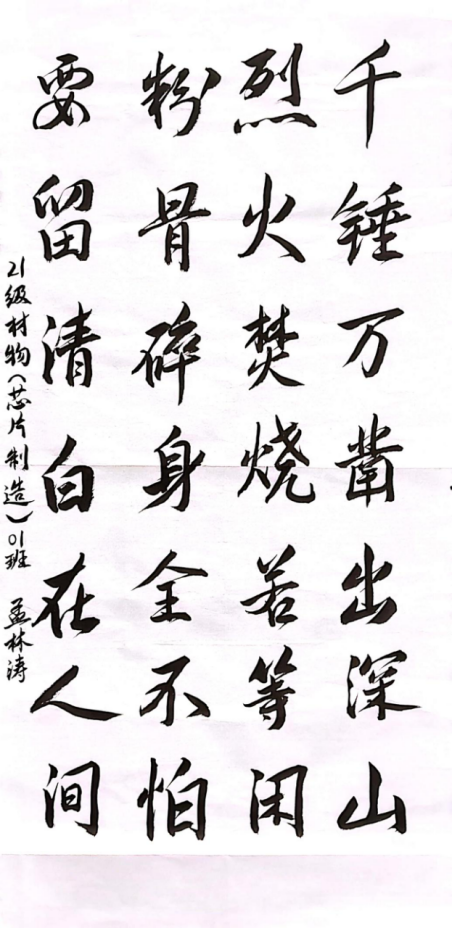 千锤万凿出深山
烈火焚烧若等闲
粉骨碎身全不怕
要留清白在人间
21级材物(芯片制造)01班 孟林涛